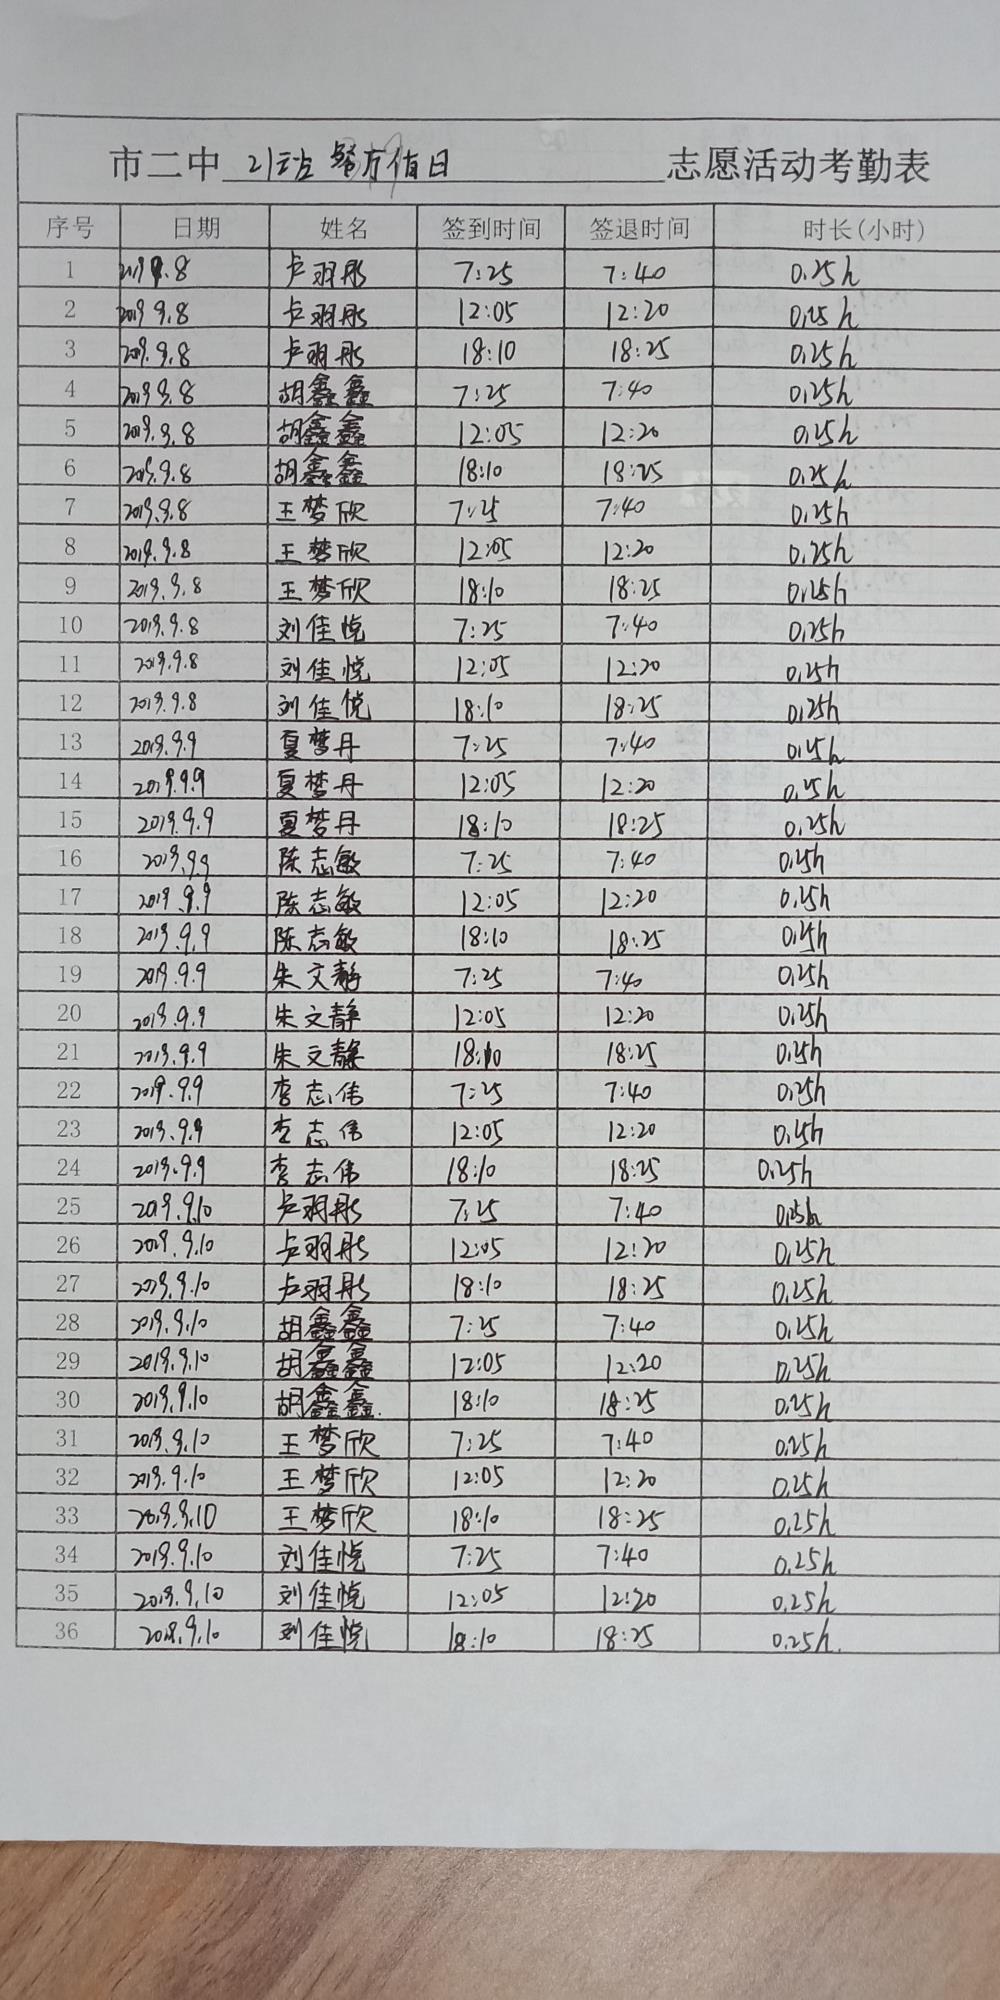 市二中 21站 餐厅值日 志愿活动考勤表
序号 日期 姓名 签到时间 签退时间 时长(小时)
1 2019.9.8 卢羽彤 7:25 7:40 0.25h
2 2019 9.8 卢羽彤 12:05 12:20 0.25h
3 2019.9.8 卢羽彤 18:10 18:25 0.25h
4 2019 9.8 胡鑫鑫 7:25 7:40 0.25h
5 2019.9.8 胡鑫鑫 12:05 12:20 0.25h
6 2019.9.8 胡鑫鑫 18:10 18:25 0.25h
7 2019.9.8 王梦欣 7:25 7:40 0.25h
8 2019.9.8 王梦欣 12:05 12:20 0.25h
9 2019.9.8 王梦欣 18:10 18:25 0.25h
10 2019.9.8 刘佳悦 7:25 7:40 0.25h
11 2019.9.8 刘佳悦 12:05 12:20 0.25h
12 2019.9.8 刘佳悦 18:10 18:25 0.25h
13 2019.9.9 夏梦丹 7:25 7:40 0.25h
14 2019.9.9 夏梦丹 12:05 12:20 0.25h
15 2019.9.9 夏梦丹 18:10 18:25 0.25h
16 2019.9.9 陈志敏 7:25 7:40 0.25h
17 2019.9.9 陈志敏 12:05 12:20 0.25h
18 2019.9.9 陈志敏 18:10 18:25 0.25h
19 2019.9.9 朱文静 7:25 7:40 0.25h
20 2019.9.9 朱文静 12:05 12:20 0.25h
21 2019.9.9 朱文静 18:10 18:25 0.25h
22 2019.9.9 李志伟 7:25 7:40 0.25h
23 2019.9.9 李志伟 12:05 12:20 0.25h
24 2019.9.9 李志伟 18:10 18:25 0.25h
25 2019.9.10 卢羽彤 7:25 7:40 0.25h
26 2019.9.10 卢羽彤 12:05 12:20 0.25h
27 2019.9.10 卢羽彤 18:10 18:25 0.25h
28 2019.9.10 胡鑫鑫 7:25 7:40 0.25h
29 2019.9.10 胡鑫鑫 12:05 12:20 0.25h
30 2019.9.10 胡鑫鑫 18:10 18:25 0.25h
31 2019.9.10 王梦欣 7:25 7:40 0.25h
32 2019.9.10 王梦欣 12:05 12:20 0.25h
33 2019.9.10 王梦欣 18:10 18:25 0.25h
34 2019.9.10 刘佳悦 7:25 7:40 0.25h
35 2019.9.10 刘佳悦 12:05 12:20 0.25h
36 2019.9.10 刘佳悦 18:10 18:25 0.25h.